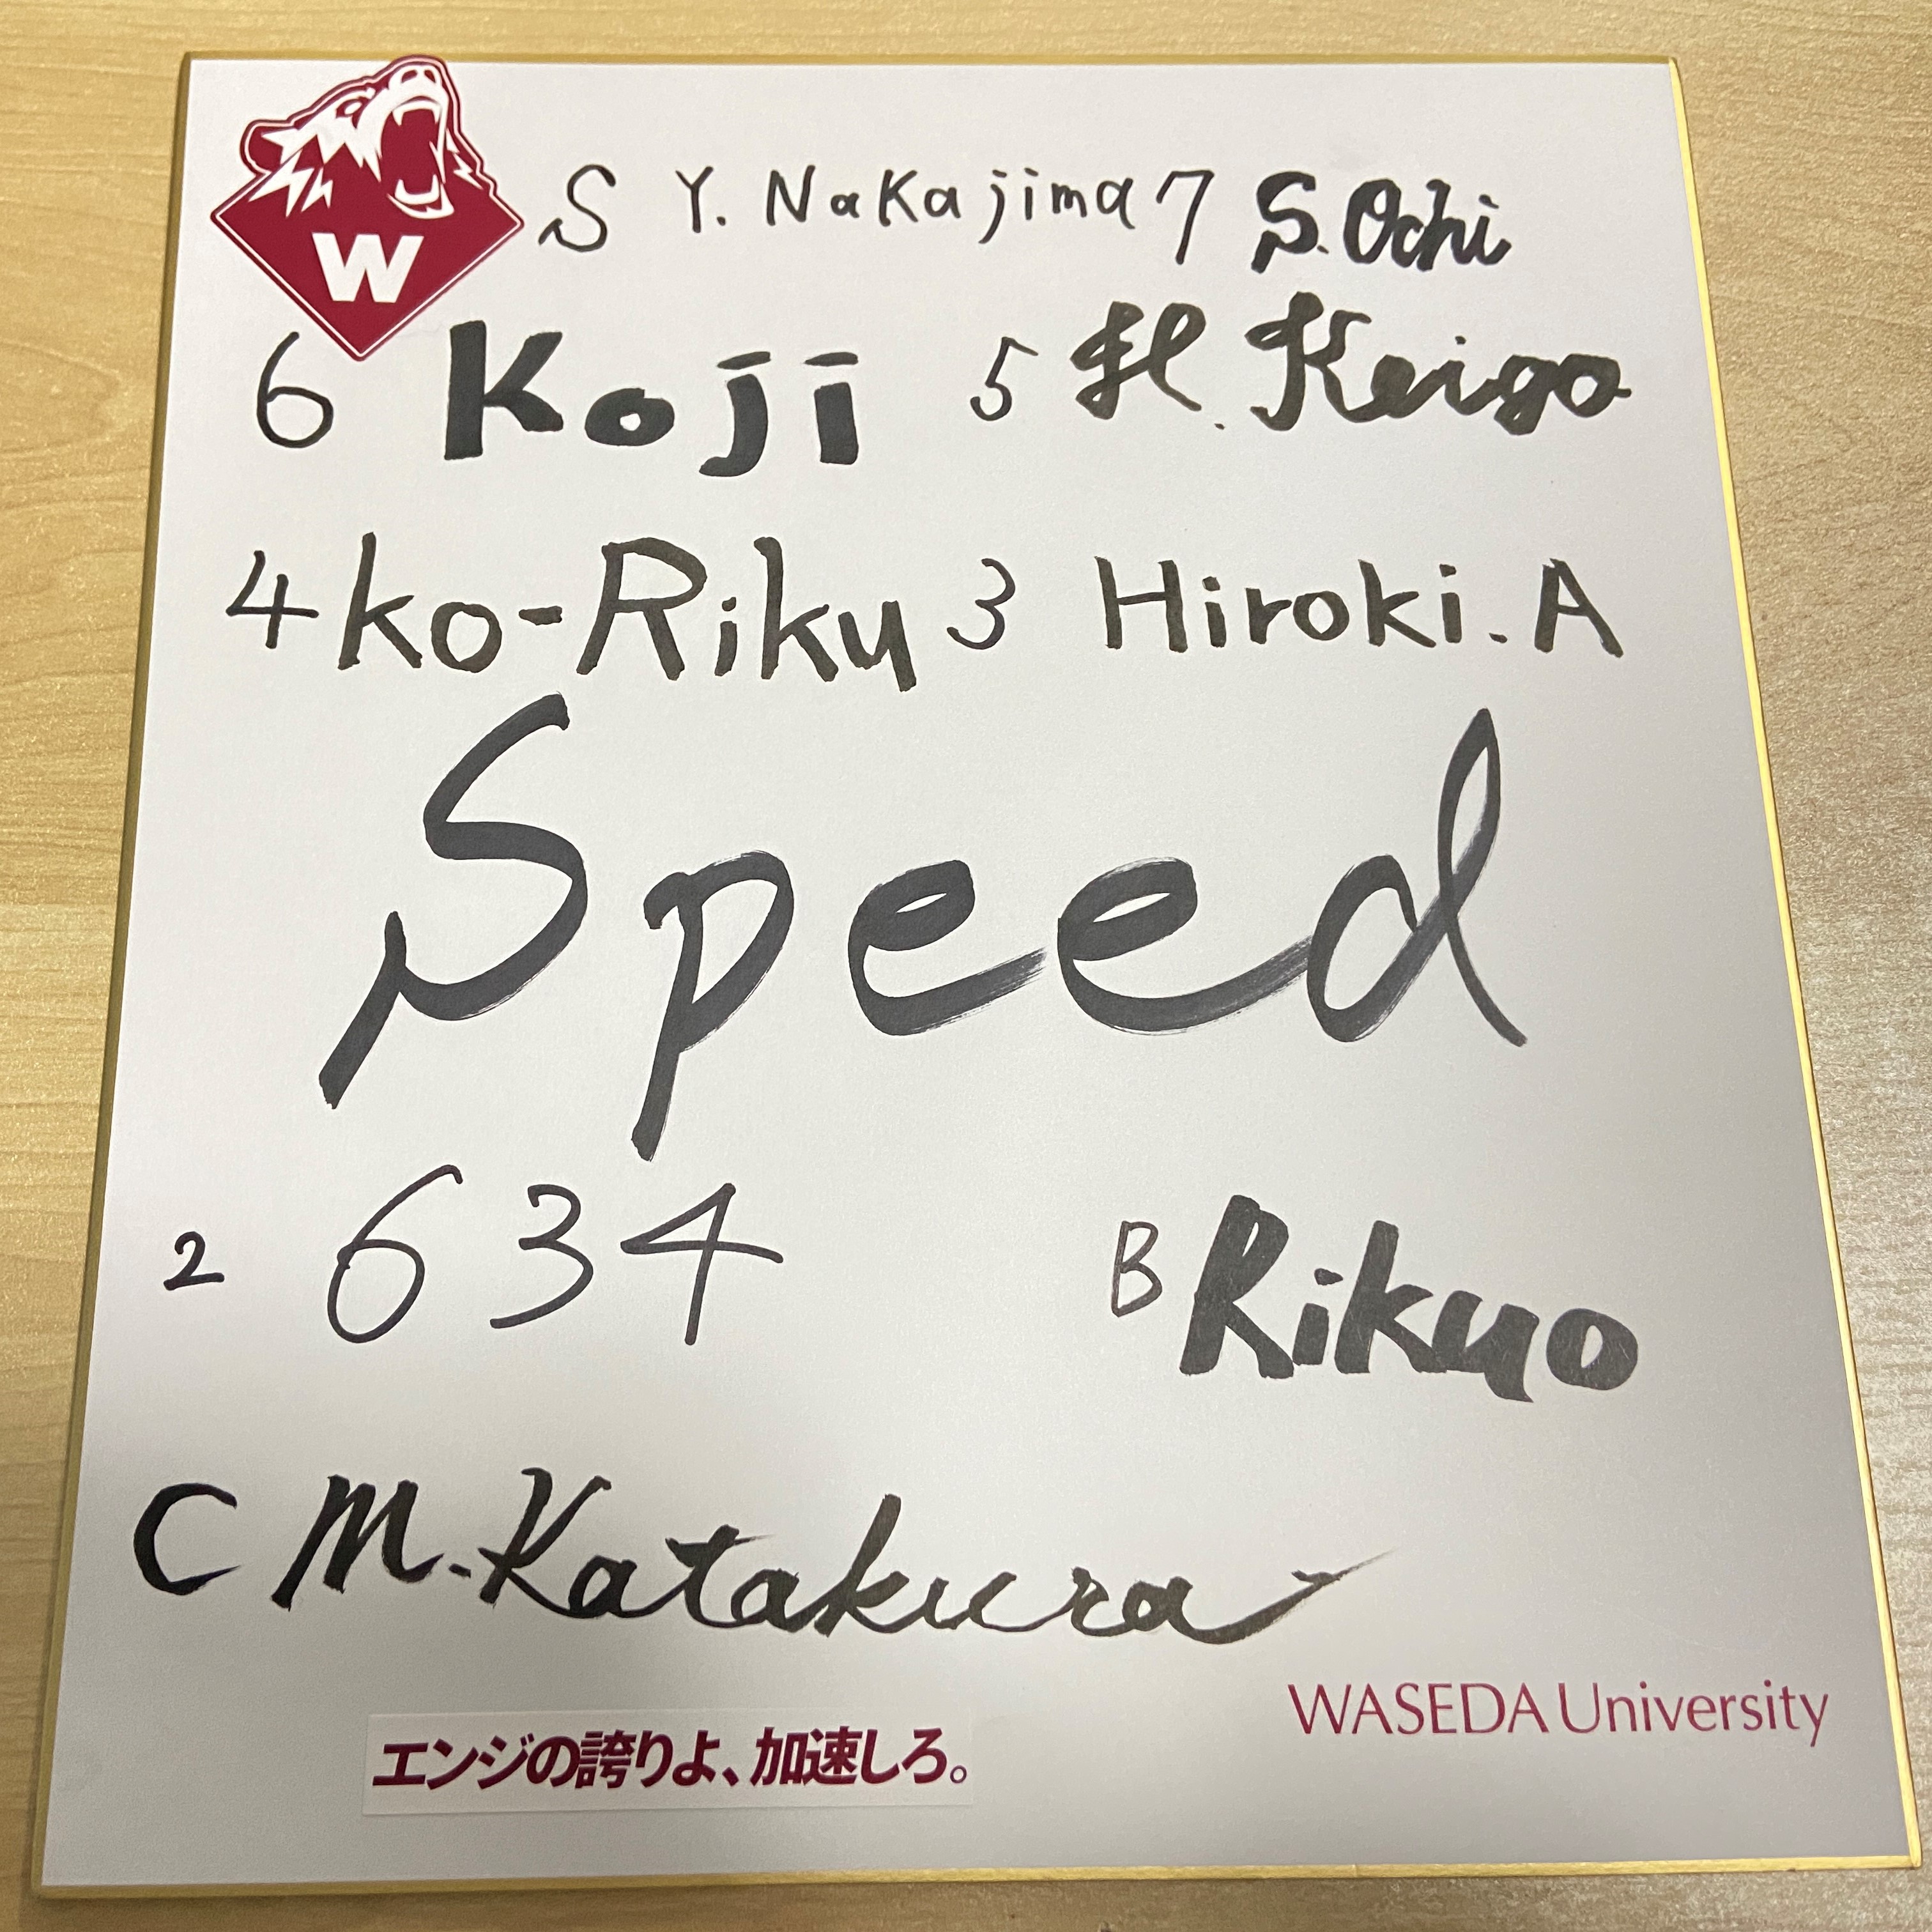 W
S Y. Nakajima 7 S. Ochi
6 Koji 5 H. Keigo
4 ko-Riku 3 Hiroki. A
Speed
2 634 B Rikuo
C M. Katakura
WASEDA University
エンジの誇りよ、加速しろ。